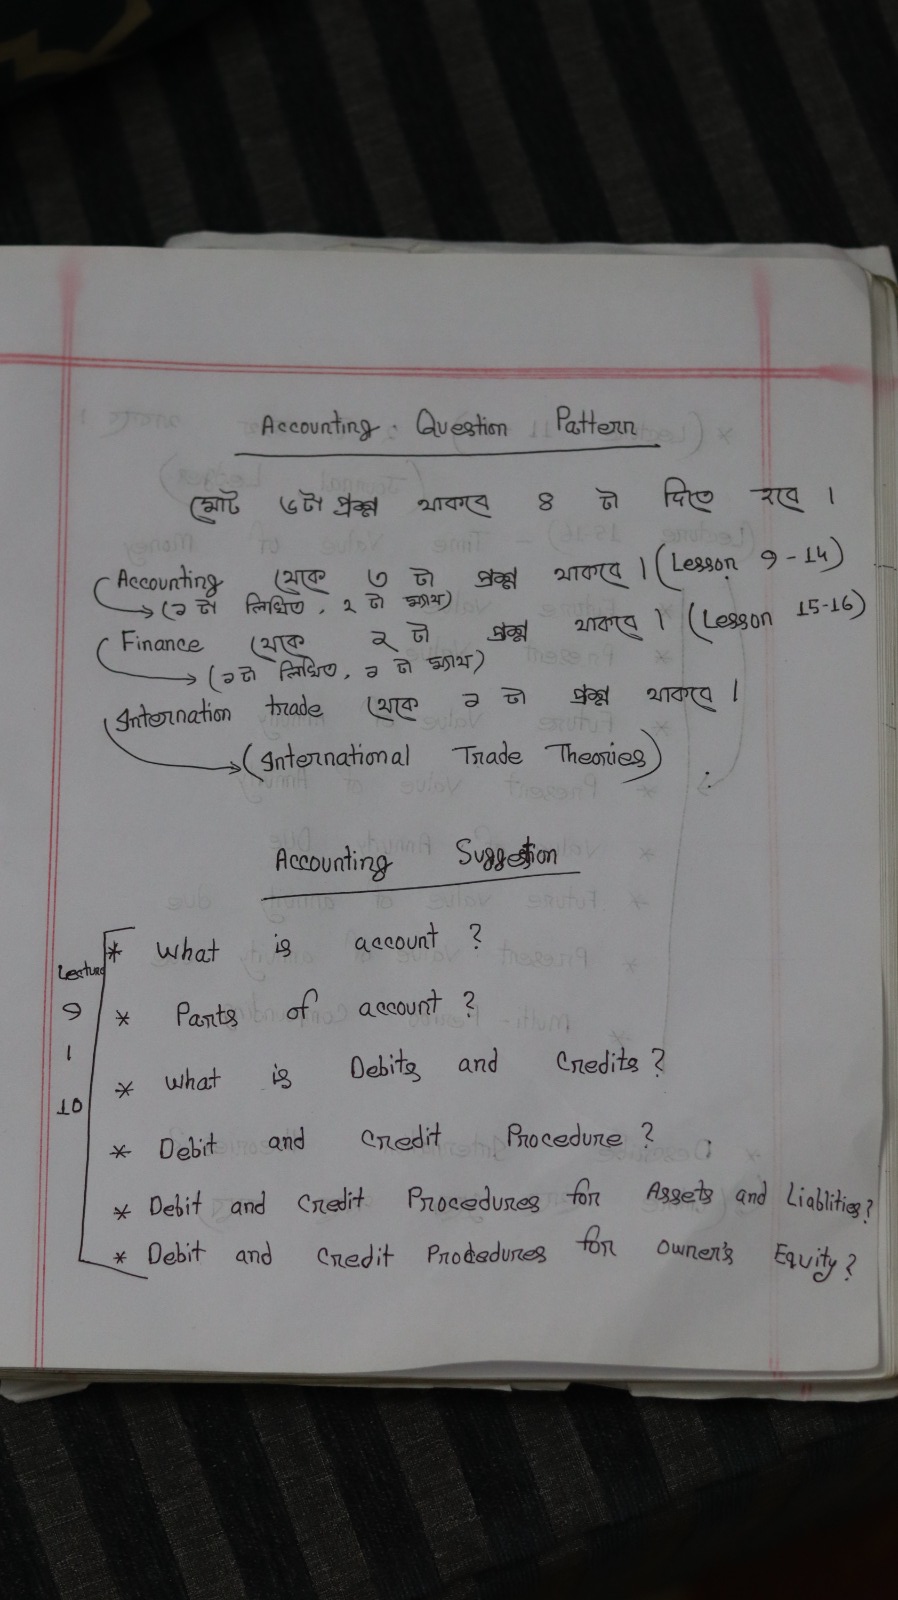 Accounting Question Pattern
মোট ৬টা প্রশ্ন থাকবে ৪ টা দিতে হবে ।
Accounting থেকে ৩ টা প্রশ্ন থাকবে । (Lesson 9-14)
(১ টা লিখিত, ২ টা ম্যাথ)
Finance থেকে ২ টা প্রশ্ন থাকবে । (Lesson 15-16)
(১টা লিখিত, ১ টা ম্যাথ)
Internation trade থেকে ১ টা প্রশ্ন থাকবে ।
(International Trade Theories)
Accounting Suggestion
Lecture 9 1 10
* What is account ?
* Parts of account ?
* What is Debits and Credits ?
* Debit and Credit Procedure ?
* Debit and Credit Procedures for Assets and Liablities ?
* Debit and Credit Procedures for owner's Equity ?